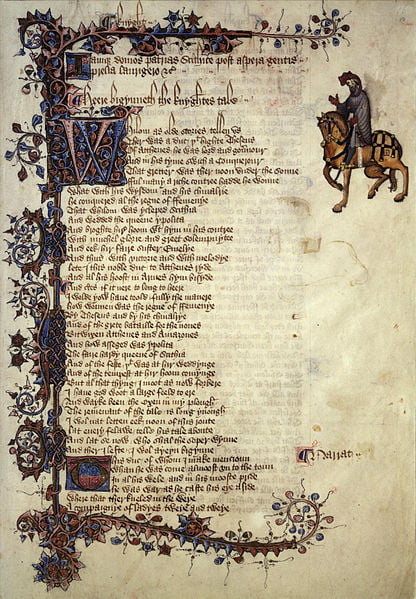 Knyght
Iamque domos patrias Scithice post aspera gentis
prelia laurigero &c
Heere bigynneth the knyghtes tale
Whilom as olde stories tellen us
Ther was a duc þt highte Theseus
Of Atthenes he was lord and gouernour
And in his tyme swich a conquerour
That gretter was ther noon under the sonne
fful many a riche contree hadde he wonne
What with his wysdom and his chiualrie
He conquered al the regne of ffemenye
That whilom was ycleped Scithia
And wedded the queene ypolita
And broghte hir hoom wt hym in his contree
With muchel glorie and greet solempnytee
And eek hir faire suster Emelye
And thus with victorie and with melodye
Lete I this noble duc to Atthenes ryde
And al his hoost in Armes hym bisyde
And certes if it nere to long to heere
I wolde yow haue toold fully the manere
How wonnen was the regne of ffemenye
By Theseus and by his chiualrye
And of the grete bataille for the nones
Bitwixen Atthenes and Amazones
And how asseged was ypolita
The faire hardy queene of Scithia
And of the feste þt was at hir weddynge
And of the tempest at hir hoom comynge
But al that thyng I moot as now forbere
I haue god woot a large feeld to ere
And wayke been the oxen in my plough
The remenant of the tale is long ynough
I wol nat letten eek noon of this route
Lat euery felawe telle his tale aboute
And lat se now who shal the soper wynne
And ther I lefte I wol ayeyn bigynne
This duc of whom I make mencioun
Narrat
Whan he was come almoost un to the toun
In al his wele and in his mooste pride
He was war as he caste his eye aside
Where that ther kneled in the weye
A compaignye of ladyes tweye and tweye